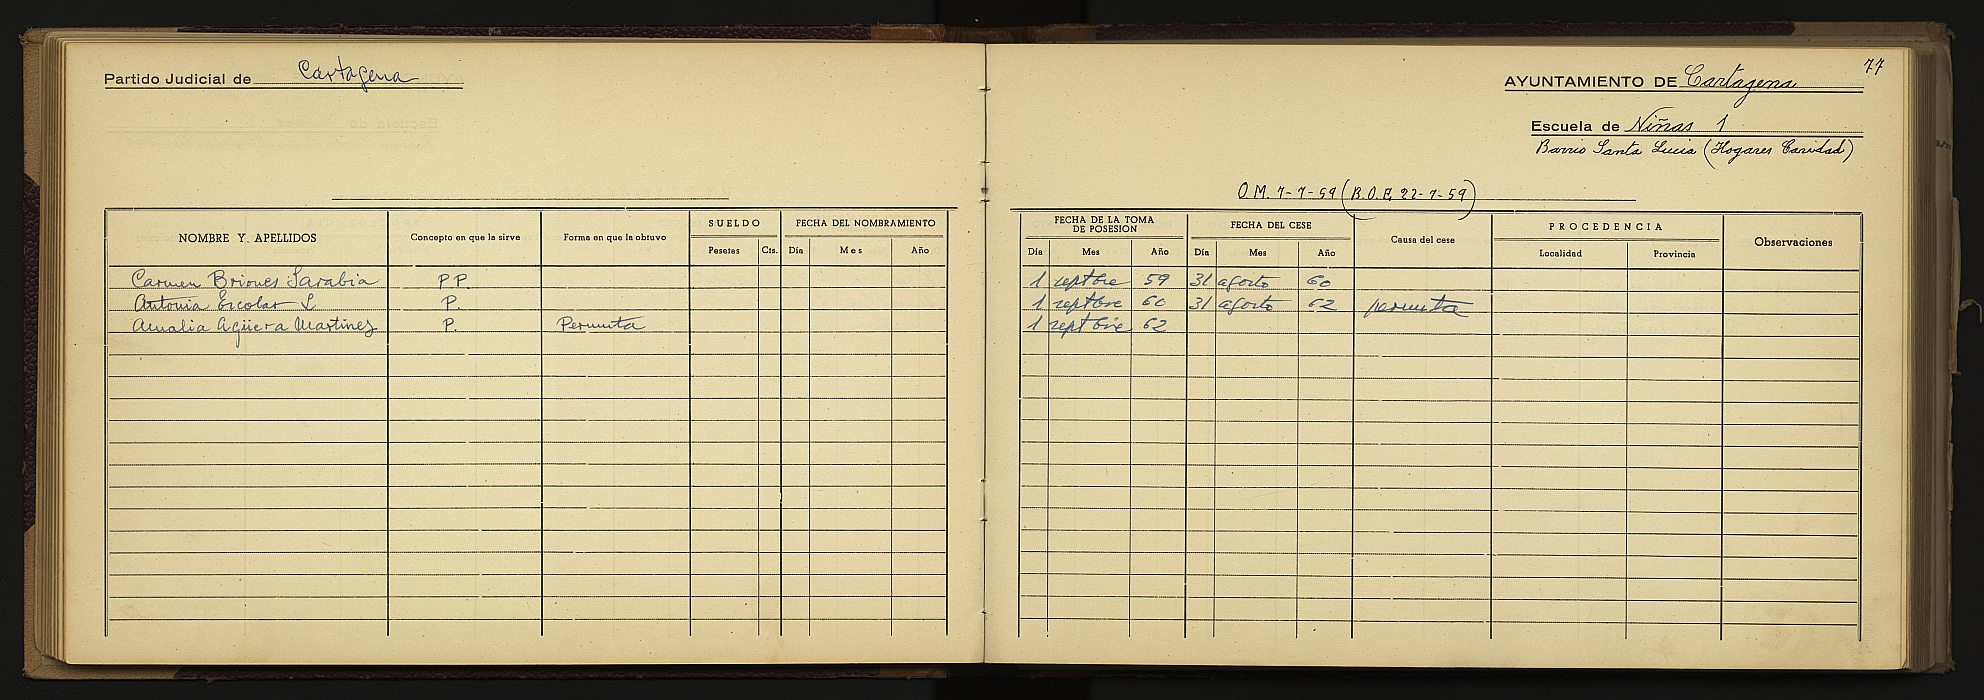 Partido Judicial de Cartagena
77
AYUNTAMIENTO DE Cartagena
Escuela de Niñas 1
Barrio Santa Lucia (Hogares Caridad)
O.M. 7-7-59 (B.O.E. 22-7-59)
NOMBRE Y APELLIDOS Concepto en que la sirve Forma en que la obtuvo SUELDO Pesetas Cts. FECHA DEL NOMBRAMIENTO Día Mes Año FECHA DE LA TOMA DE POSESION Día Mes Año FECHA DEL CESE Día Mes Año Causa del cese PROCEDENCIA Localidad Provincia Observaciones
Carmen Briones Sarabia P P. 1 septbre 59 31 agosto 60
Antonia Escolar L P. 1 septbre 60 31 agosto 62 permuta
Amalia Agüera Martinez P. Permuta 1 septbre 62